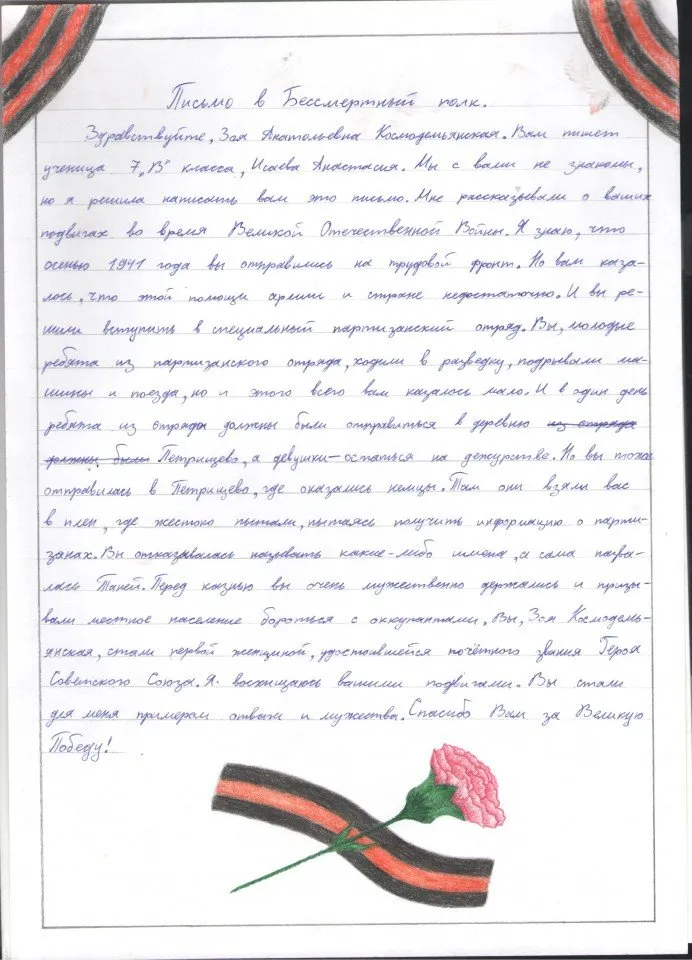 Письмо в Бессмертный полк.
Здравствуйте, Зоя Анатольевна Космодемьянская. Вам пишет
ученица 7 „В" класса, Исаева Анастасия. Мы с вами не знакомы,
но я решила написать вам это письмо. Мне рассказывали о ваших
подвигах во время Великой Отечественной Войны. Я знаю, что
осенью 1941 года вы отправились на трудовой фронт. Но вам каза-
лось, что этой помощи армии и стране недостаточно. И вы ре-
шили вступить в специальный партизанский отряд. Вы, молодые
ребята из партизанского отряда, ходили в разведку, подрывали ма-
шины и поезда, но и этого всего вам казалось мало. И в один день
ребята из отряда должны были отправиться в деревню из отряда
должны были Петрищево, а девушки - остаться на дежурстве. Но вы тоже
отправилась в Петрищево, где оказались немцы. Там они взяли вас
в плен, где жестоко пытали, пытаясь получить информацию о парти-
занах. Вы отказывалась называть какие-либо имена, а сама назва-
лась Таней. Перед казнью вы очень мужественно держались и призы-
вали местное население бороться с оккупантами. Вы, Зоя Космодемь-
янская, стали первой женщиной, удостоившейся почётного звания Героя
Советского Союза. Я восхищаюсь вашими подвигами. Вы стали
для меня примером отваги и мужества. Спасибо Вам за Великую
Победу!